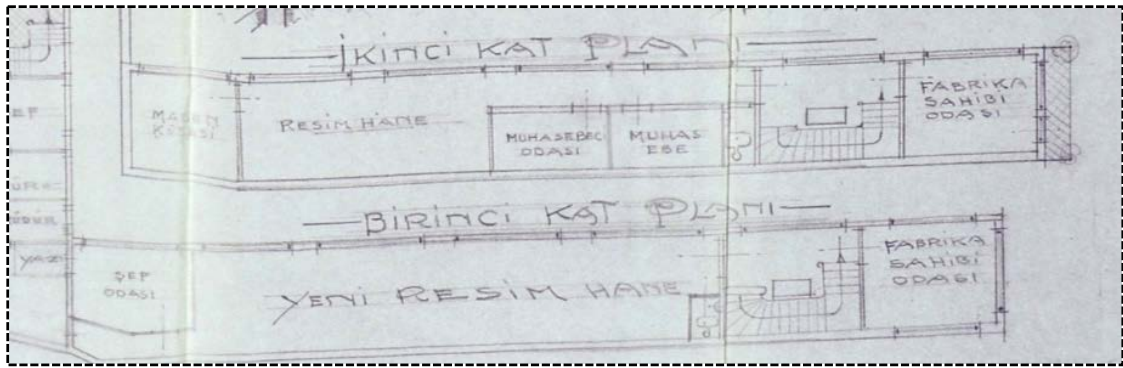 İKİNCİ KAT PLANI
RESİM HANE
MUHASEBECİ
ODASI
MUHAS
EBE
FABRİKA
SAHİBİ
ODASI
BİRİNCİ KAT PLANI
ŞEF
ODASI
YENİ RESİM HANE
FABRİKA
SAHİBİ
ODASI
YAZI